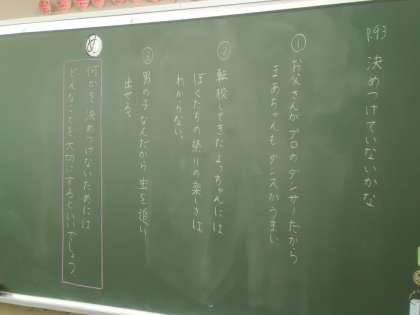 P.93 決めつけていないかな
① お父さんがプロのダンサーだから
まあちゃんもダンスがうまい
② 転校してきたよっちゃんには
ぼくたちの祭りの楽しさは
わからない。
③ 男の子なんだから虫を追い
出せる。
め
何かを決めつけないためには
どんなことを大切にするといいでしょう。